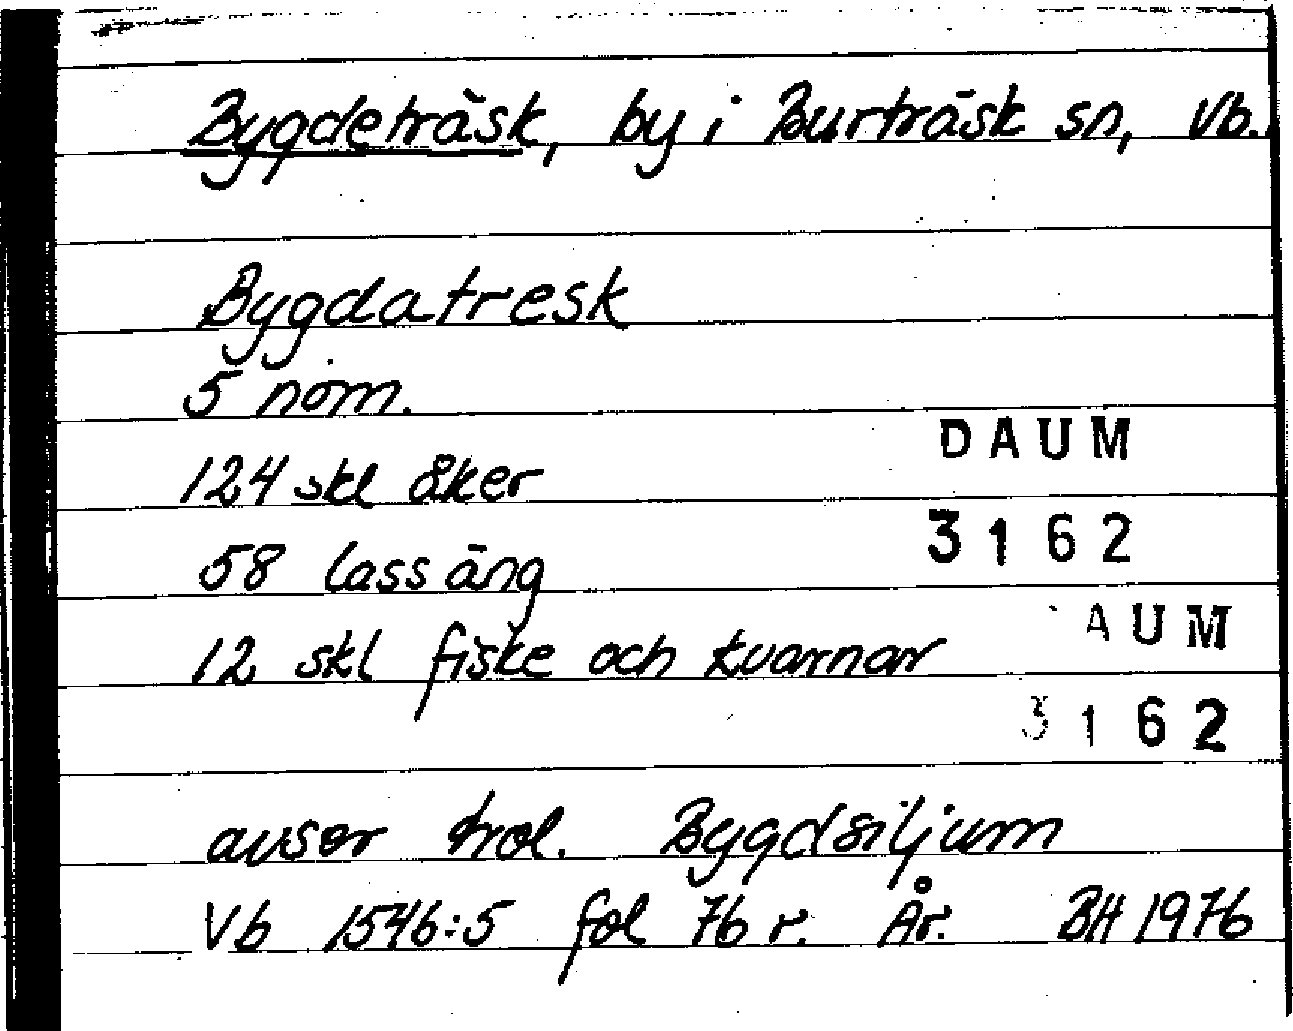 Bygdeträsk, by i Burträsk sn, Vb.
Bygdatresk
5 nom.
124 skl åker
DAUM
58 lass äng
3162
12 skl fiske och kvarnar
AUM
3162
avser trol. Bygdsiljum
Vb 1546:5 fol 76 r. År. BH 1976